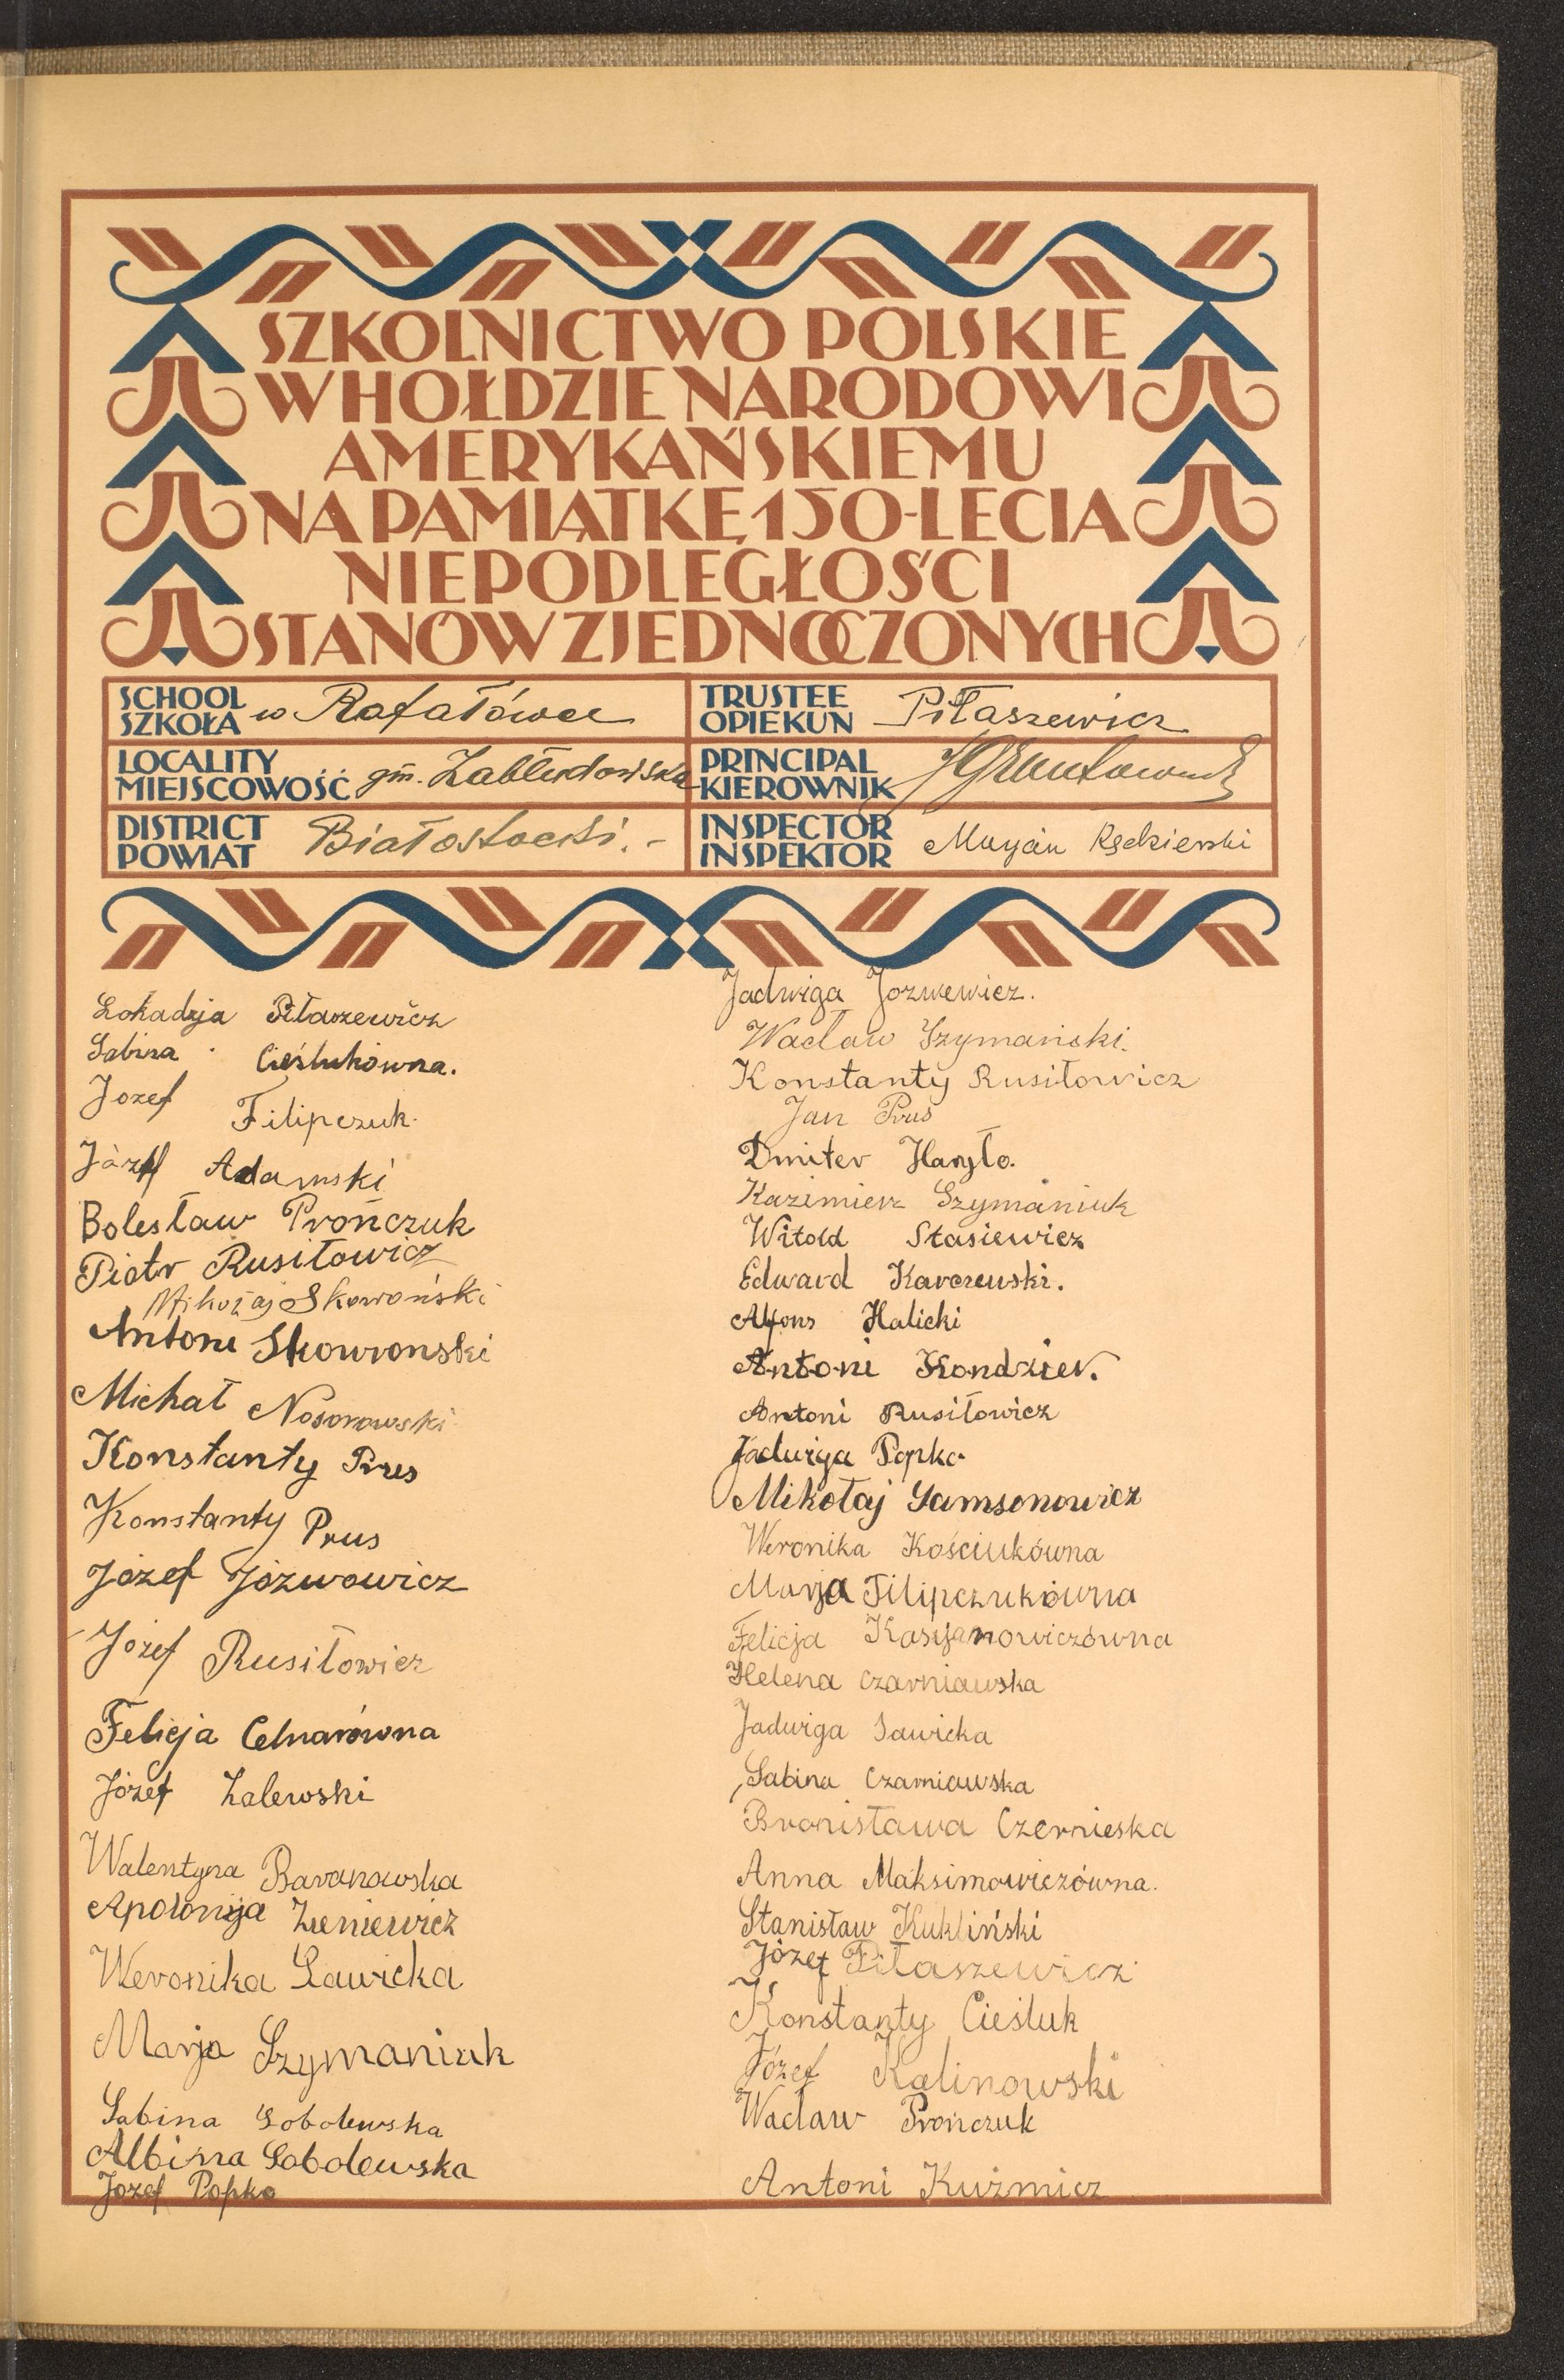 SZKOLNICTWO POLSKIE
W HOŁDZIE NARODOWI
AMERYKAŃSKIEMU
NA PAMIĄTKĘ 150-LECIA
NIEPODLEGŁOŚCI
STANÓW ZJEDNOCZONYCH
SCHOOL
SZKOŁA w Rafałówce
TRUSTEE
OPIEKUN Piłaszewicz
LOCALITY
MIEJSCOWOŚĆ gm. Zabłudowska
PRINCIPAL
KIEROWNIK
DISTRICT
POWIAT Białostocki.-
INSPECTOR
INSPEKTOR Maryan Kędzierski
Lokadja Piłaszewicz
Sabina Cieślukówna.
Jozef Filipczuk.
Józef Adamski
Bolesław Prończuk
Piotr Rusiłowicz
Mikołaj Skowoński
Antoni Skowronski
Michał Nosorowski
Konstanty Prus
Konstanty Prus
Józef Józwowicz
Józef Rusiłowicz
Felicja Celnarówna
Józef Zalewski
Walentyna Baranowska
Apolonija Zieniewicz
Weronika Sawicka
Marja Szymaniuk
Sabina Sobolewska
Albina Sobolewska
Jozef Popko
Jadwiga Jozwewicz.
Wacław Szymański.
Konstanty Rusiłowicz
Jan Prus
Dmiter Haryło.
Kazimierz Szymaniuk
Witold Stasiewicz
Edward Karczewski.
Alfons Halicki
Antoni Kondzier.
Antoni Rusiłowicz
Jadwiga Popko
Mikołaj Samsonowicz
Weronika Kościukówna
Marja Filipczukówna
Felicja Kasyanowiczówna
Helena Czarniawska
Jadwiga Sawicka
Sabina Czarniawska
Bronisława Czernieska
Anna Maksimowiczówna.
Stanisław Kukliński
Józef Piłaszewicz
Konstanty Cieśluk
Józef Kalinowski
Wacław Prończuk
Antoni Kuźmicz